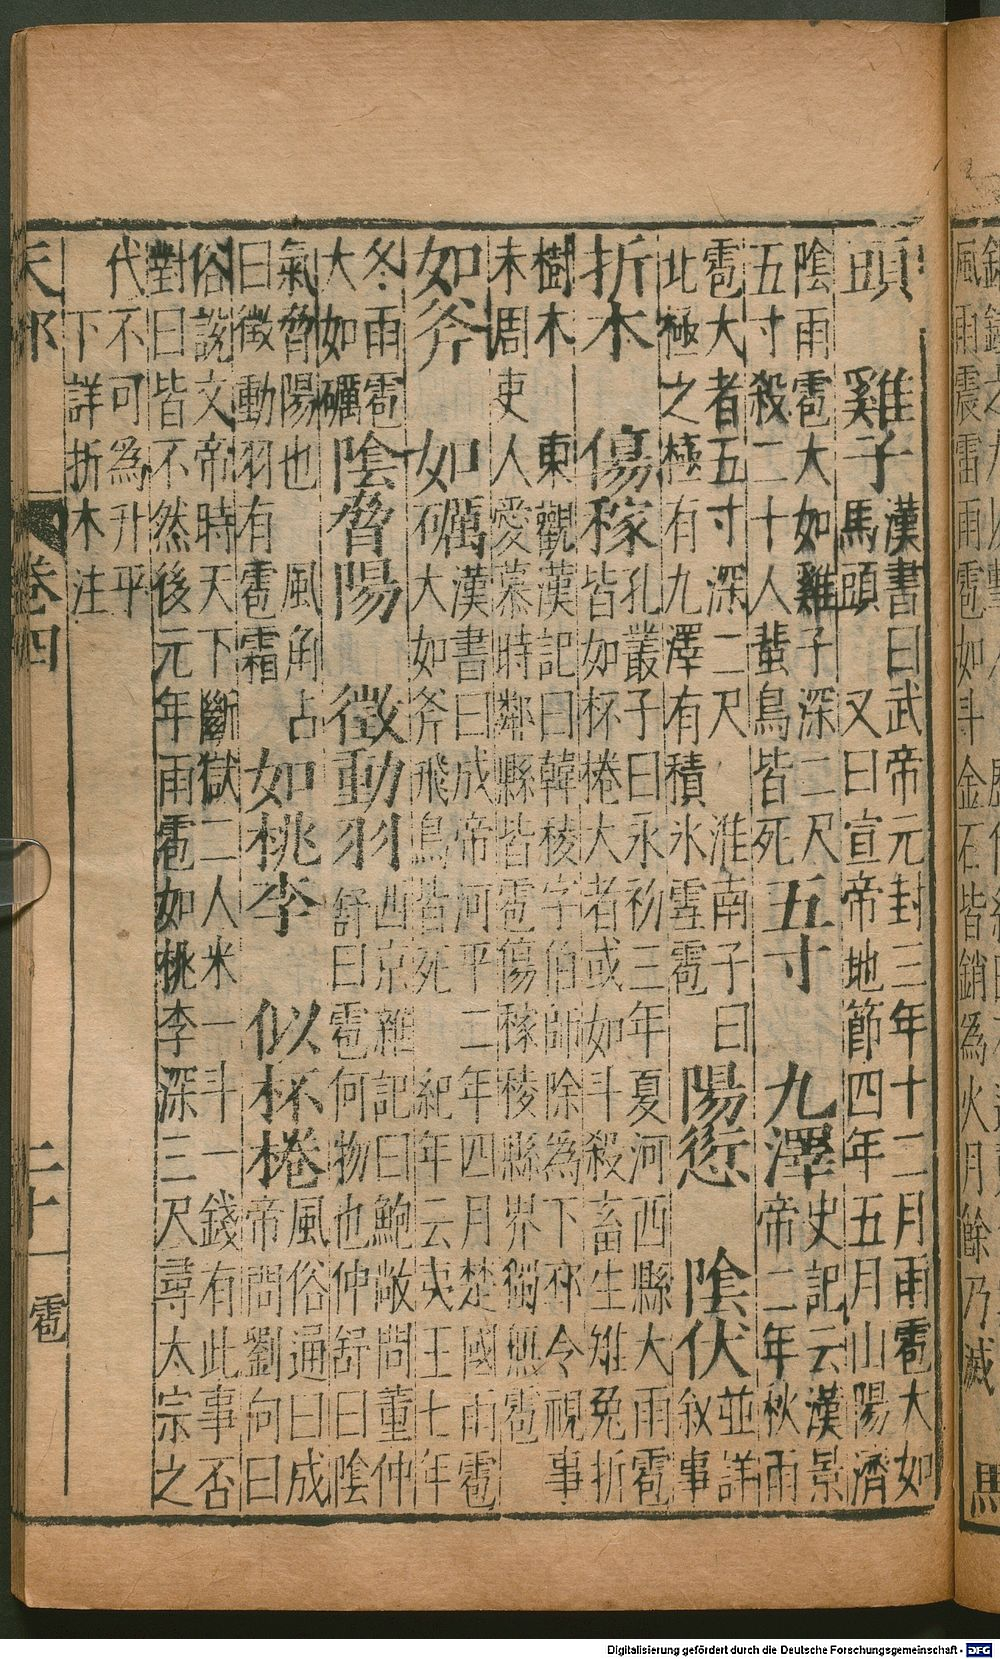 風雨震雷雨雹如斗金石皆銷爲火月餘乃滅
馬
頭 雞子
漢書曰武帝元封三年十二月雨雹大如
馬頭 又曰宣帝地節四年五月山陽濟
陰雨雹大如雞子深二尺
五寸殺二十人蜚鳥皆死
五寸 九澤
史記云漢景
帝二年秋雨
雹大者五寸深二尺 淮南子曰
北極之極有九澤有積氷雪雹
陽愆 陰伏
並詳
叙事
折木 傷稼
孔叢子曰永初三年夏河西縣大雨雹
皆如杯棬大者或如斗殺畜生雉兔折
樹木 東觀漢記曰韓稜字伯師除爲下邳令視事
未周吏人愛慕時鄰縣皆雹傷稼稜縣界獨無雹
如斧 如礪
漢書曰成帝河平二年四月楚國雨雹
大如斧飛鳥皆死 紀年云夷王七年
冬雨雹
大如礪
陰脅陽 徵動羽
西京雜記曰鮑敞問董仲
舒曰雹何物也仲舒曰陰
氣脅陽也 風角占
曰徵動羽有雹霜
如桃李 似杯棬
風俗通曰成
帝問劉向曰
俗說文帝時天下斷獄二人米一斗一錢有此事否
對曰皆不然後元年雨雹如桃李深三尺尋太宗之
代不可爲升平
下詳折木注
天部 卷四 二十 雹
Digitalisierung gefördert durch die Deutsche Forschungsgemeinschaft - DFG